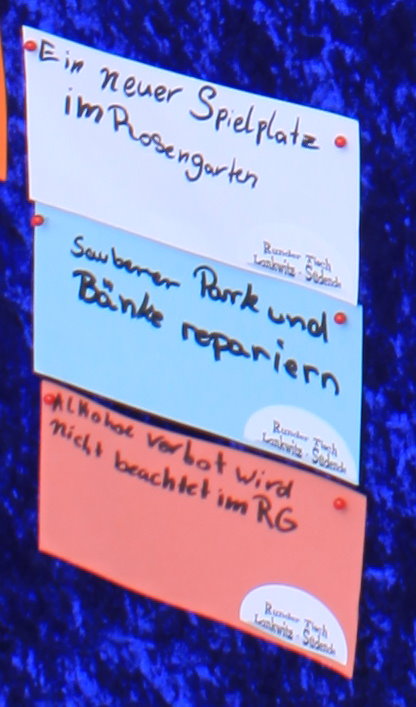 Ein neuer Spielplatz
im Rosengarten
Runder Tisch
Lankwitz - Südende
Sauberer Park und
Bänke repariern
Runder Tisch
Lankwitz - Südende
Alkohoe verbot wird
nicht beachtet im RG
Runder Tisch
Lankwitz - Südende